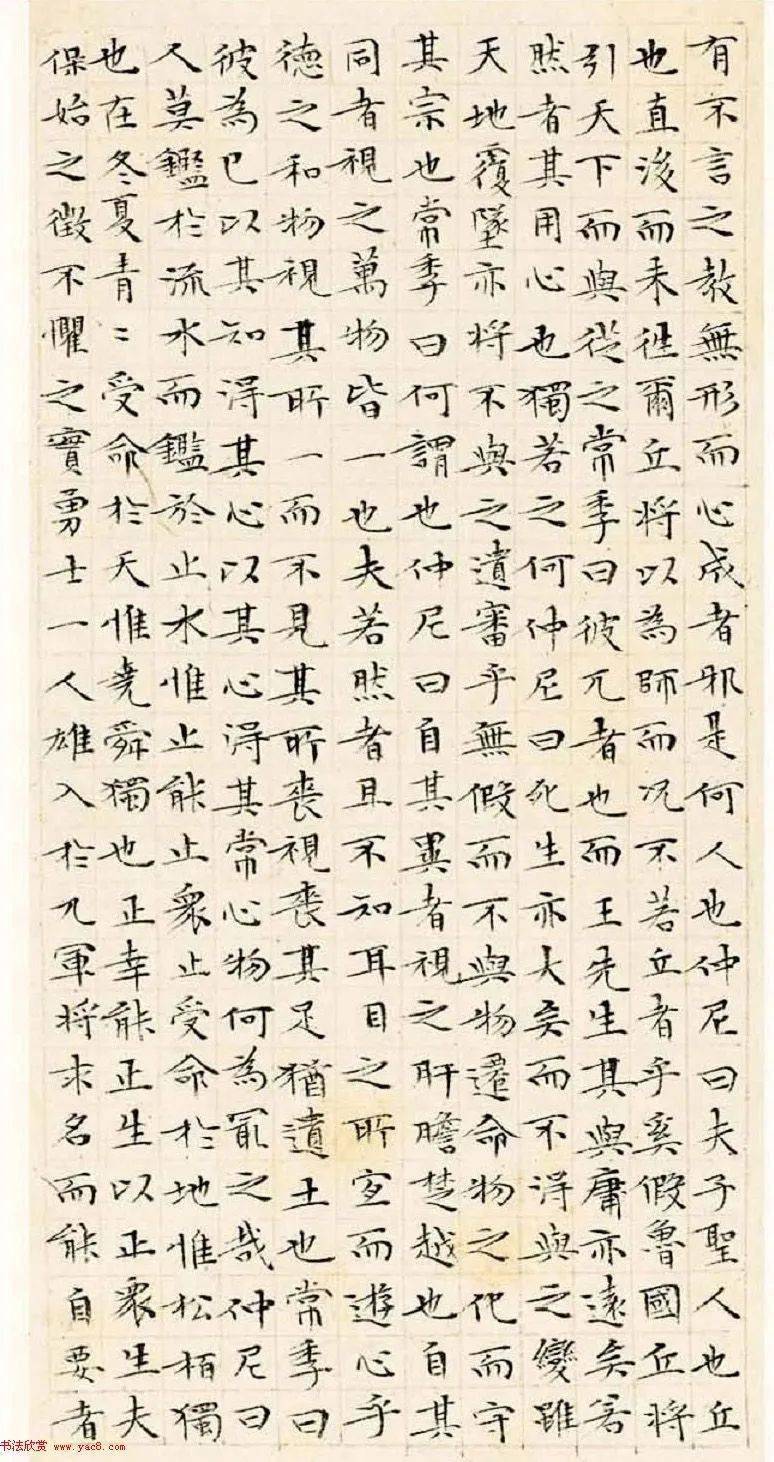 有不言之教無形而心成者邪是何人也仲尼曰夫子聖人也丘
也直後而未往爾丘將以為師而況不若丘者乎奚假魯國丘將
引天下而與從之常季曰彼兀者也而王先生其與庸亦遠矣若
然者其用心也獨若之何仲尼曰死生亦大矣而不得與之變雖
天地覆墜亦將不與之遺審乎無假而不與物遷命物之化而守
其宗也常季曰何謂也仲尼曰自其異者視之肝膽楚越也自其
同者視之萬物皆一也夫若然者且不知耳目之所宜而遊心乎
德之和物視其所一而不見其所喪視喪其足猶遺土也常季曰
彼為己以其知得其心以其心得其常心物何為冣之哉仲尼曰
人莫鑑於流水而鑑於止水惟止能止衆止受命於地惟松柏獨
也在冬夏青〻受命於天惟堯舜獨也正幸能正生以正衆生夫
保始之徵不懼之實勇士一人雄入於九軍將求名而能自要者
书法欣赏 www.yac8.com